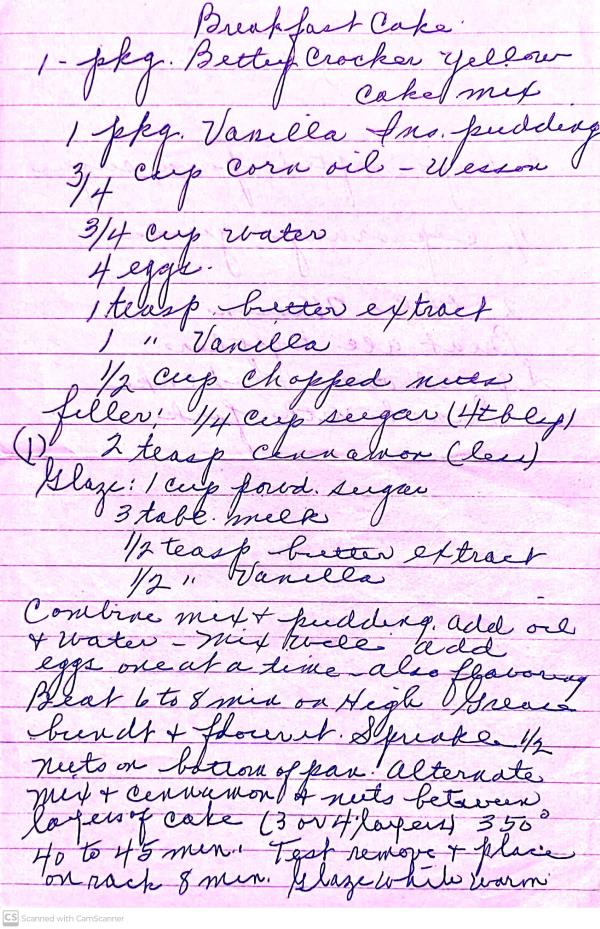 Breakfast Cake
1 - pkg. Betty Crocker Yellow
cake mix
1 pkg. Vanilla Ins. pudding
3/4 cup corn oil - Wesson
3/4 cup water
4 eggs.
1 teasp butter extract
1 " Vanilla
1/2 cup chopped nuts
filler: 1/4 cup sugar (4 tblsp)
(1) 2 teasp cinnamon (less)
Glaze: 1 cup powd. sugar
3 tabl. milk
1/2 teasp butter extract
1/2 " Vanilla
Combine mix & pudding. add oil
& water - Mix well add
eggs one at a time - also flavoring
Beat 6 to 8 min on High Grease
bundt & flour it. Sprinkle 1/2
nuts on bottom of pan. Alternate
mix & cinnamon & nuts between
layers of cake (3 or 4 layers) 350°
40 to 45 min. Test remove & place
on rack 8 min. Glaze while warm
CS Scanned with CamScanner